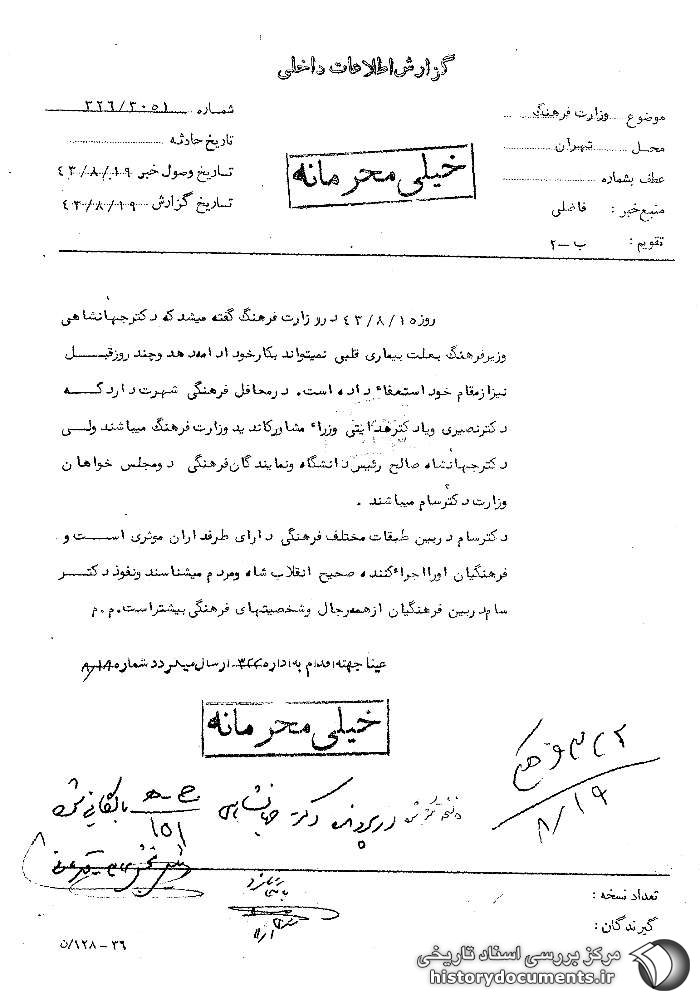 گزارش اطلاعات داخلی
موضوع وزارت فرهنگ
محل شهران
عطف بشماره
منبع خبر : فاضلی
تقویم : ب -۲
شماره ۳۲۶/۳۰۵۱
تاریخ حادثه
تاریخ وصول خبر ۴۳/۸/۱۹
تاریخ گزارش ۴۳/۸/۱۹
خیلی محرمانه
روزه ۴۳/۸/۱ در وزارت فرهنگ گفته میشد که دکتر جهانشاهی
وزیرفرهنگ بعلت بیماری قلبی نمیتواند بکارخود ادامه دهد و چند روز قبل
نیز از مقام خود استعفاء داده است . در محافل فرهنگی شهرت دارد که
دکترنصیری ویادکترهدایتی وزراء مشاورکاندید وزارت فرهنگ میباشند ولی
دکترجهانشاه صالح رئیس دانشگاه ونمایندگان فرهنگی دومجلس خواهان
وزارت دکترسام میباشند .
دکترسام دربین طبقات مختلف فرهنگی دارای طرفداران موثری است و
فرهنگیان اورا اجراء کننده صحیح انقلاب شاه ومردم میشناسند ونفوذ دکتر
سام دربین فرهنگیان ازهمه رجال وشخصیتهای فرهنگی بیشتراست . م . م
عینا جهته اقدام به اداره ۳۲۲ ارسال میگردد شماره ۸/۱۹
خیلی محرمانه
۸/۱۹
در پرونده دکتر جهانشاهی
بایگانی شود
۱۵۱
تعداد نسخه :
گیرندگان :
۳۶ - ۱۲۸/ن
مرکز بررسی اسناد تاریخی
historydocuments.ir